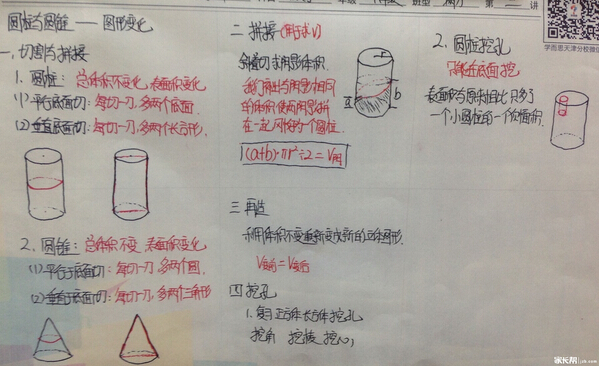 圆柱与圆锥——图形变化
一.切割与拼接
1.圆柱:总体积不变,表面积变化
(1)平行底面切:每切一刀,多两个底面.
(2)垂直底面切:每切一刀,多两个长方形.
2.圆锥:总体积不变 表面积变化
(1)平行于底面切:每切一刀,多两个圆.
(2)垂直于底面切:每切一刀,多两个三角形
二 拼接(用于求V)
斜着切求阴影体积
我们再出与阴影相同
的体积使两阴影拼
在一起,刚好为一个圆柱.
(a+b)·πr²÷2=V阴
r
a
b
三 再造
利用体积不变重新变成新的立体图形.
V变前=V变后
四 挖孔
1.复习正方体长方体挖孔
挖角 挖棱 挖心
2.圆柱挖孔
只能在底面挖
表面积与原来相比只多了
一个小圆柱的一个侧面积.
第 讲
学而思天津分校微信
家长帮 jzb.com